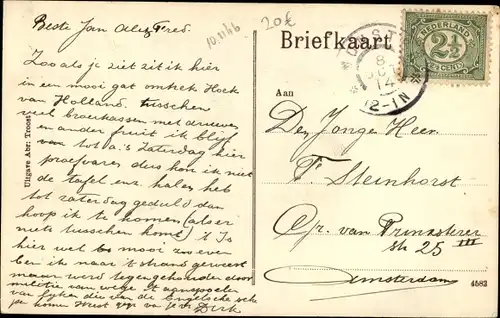 Beste Jan Aly Fred.
Zoo als je ziet zit ik hier
in een mooi gat omtrek Hoek
van Holland. tusschen
veel broeikassen met druiven
en ander fruit ik blijf
tot a.s. Zaterdag hier
proefvaren dus kan ik niet
de tafel enz. halen heb
tot zaterdag geduld dan
hoop ik te komen (als er
niets tusschen komt) 't Is
hier wel mooi zoo even
ben ik naar 't strand geweest
maar werd tegengehouden door
militie van wege 't aanspoelen
van lyken die van de Engelsche
Dirk
Uitgave Abr: Troost
10.11.46
20 €
Briefkaart
NEDERLAND
2½
CENT
8
14
12-1N
Aan
Den Jongen Heer
F. Steinhorst
Gr. van Prinsterer
str 25 III
Amsterdam
4582